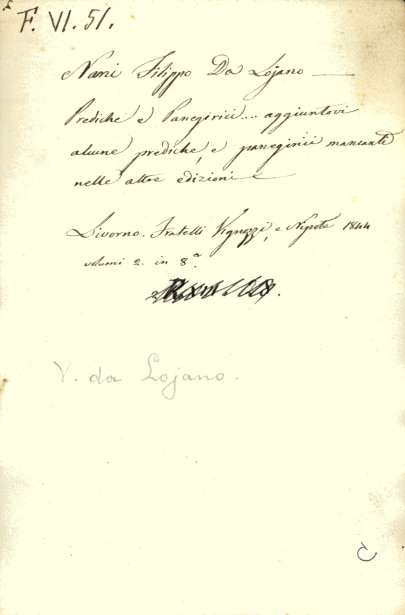 F. VI. 51.
Nanni Filippo Da Lojano
Prediche e Panegirici... aggiuntovi
alcune prediche, e panegirici mancanti
nelle altre edizioni
Livorno. Fratelli Vignozzi, e Nipote 1844
volumi 2. in 8.°
V. da Lojano.